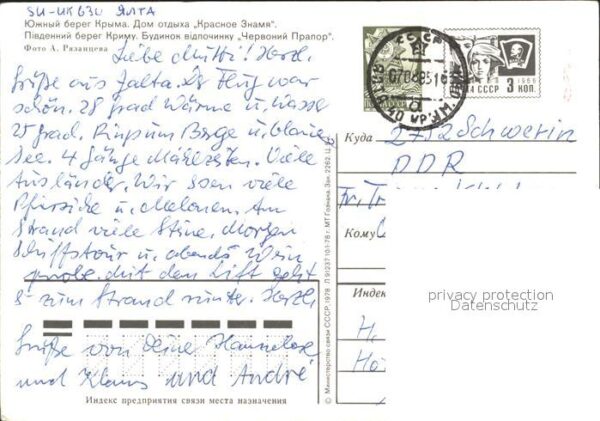 SU-UK 630 ЯЛТА
Южный берег Крыма. Дом отдыха „Красное Знамя".
Південний берег Криму. Будинок відпочинку „Червоний Прапор".
Фото А. Рязанцева
Liebe Mutti! Herzl.
Grüße aus Jalta. Der Flug war
schön. 28 Grad Wärme u. Wasser
25 Grad. Ringsum Berge u. blaue
See. 4 Gänge Mahlzeiten. Viele
Ausländer. Wir essen viele
Pfirsiche u. Melonen. Am
Strand viele Steine. Morgen
Schiffstour u. abends Wein
probe. Mit dem Lift geht
es zum Strand runter. Herzl.
Grüße von Deine Hannelore
und Klaus und André
Индекс предприятия связи места назначения
© Министерство связи СССР. 1978 Л 912377 10-I-78 г. МТ Гознака. Зак. 2262. Ц.
СССР
3 КОП.
Куда 2752 Schwerin
DDR
Fr.
Кому
Индек
H.
privacy protection
Datenschutz